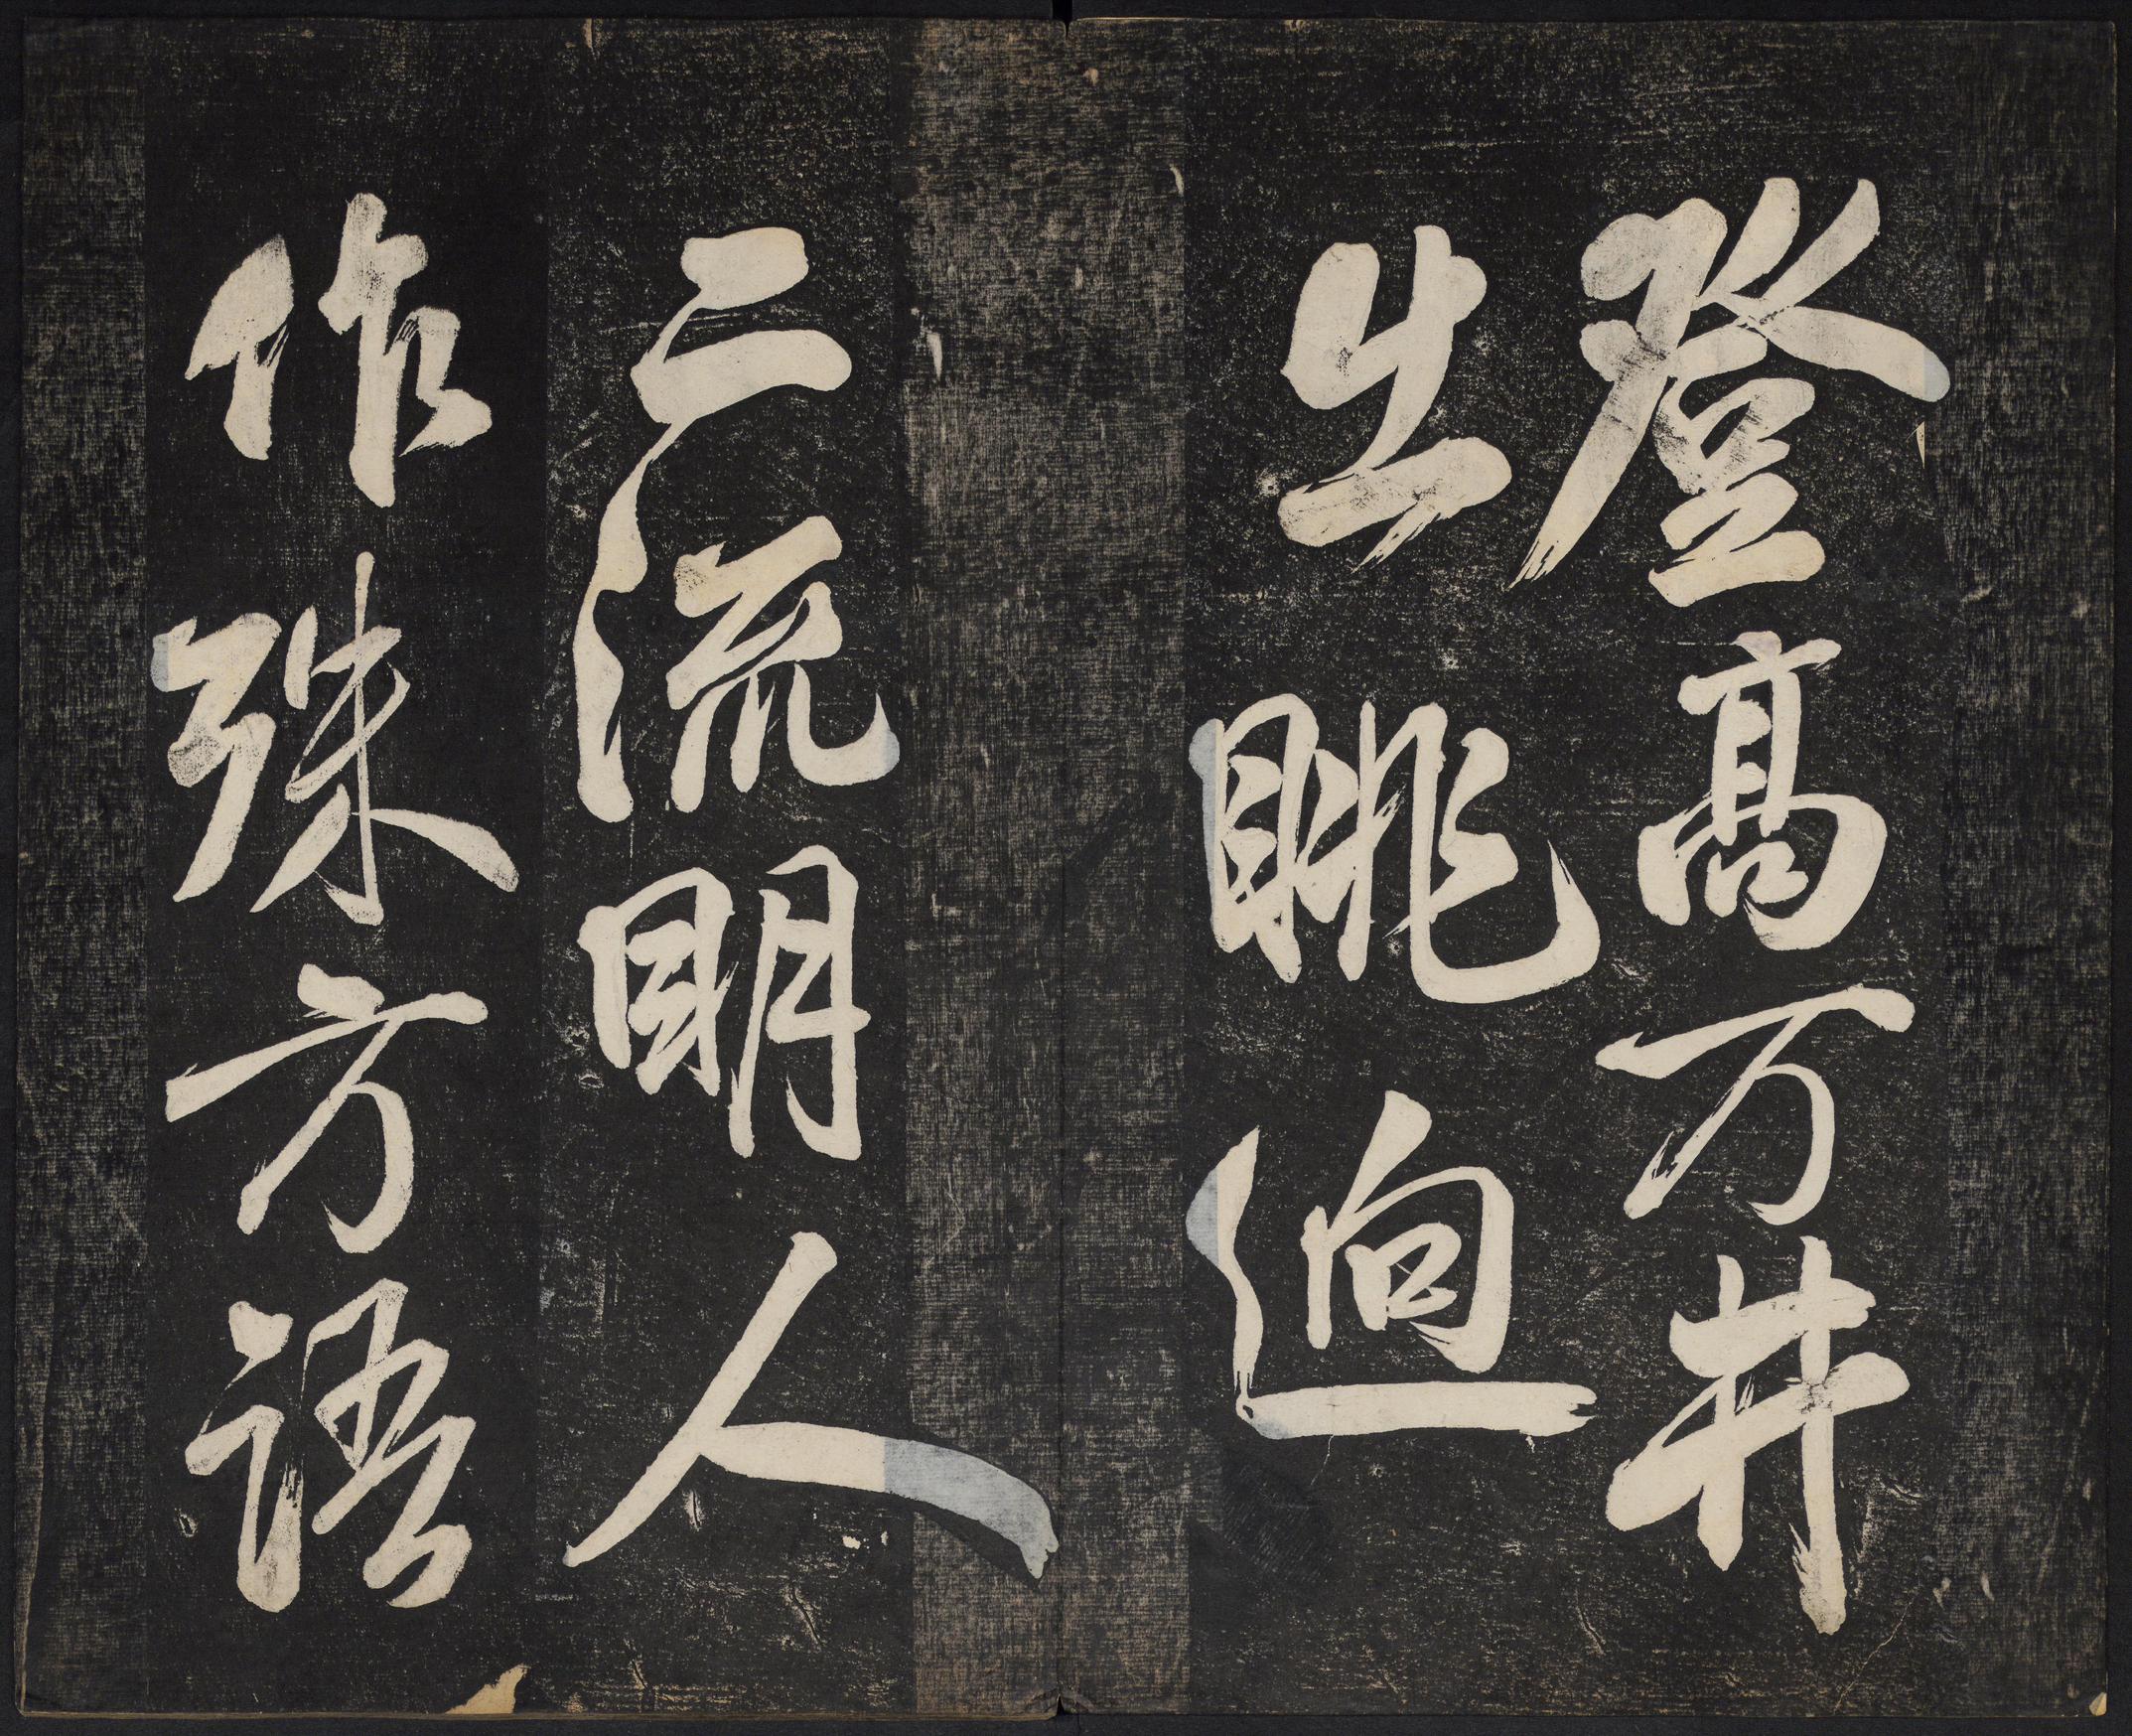 登髙万井
出眺逈
二流明人
作殊方語